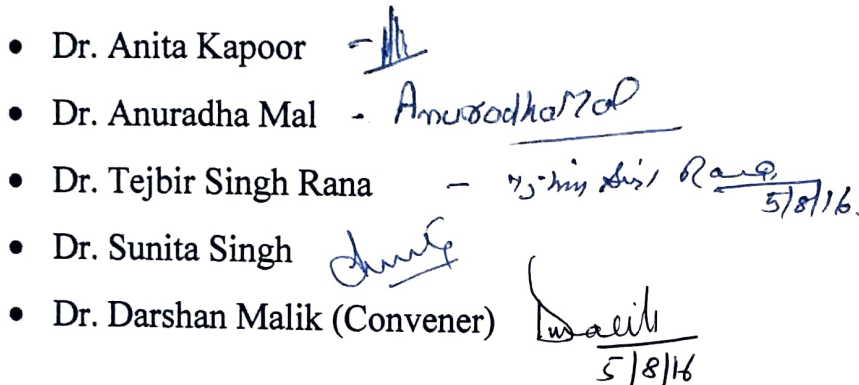 • Dr. Anita Kapoor -
• Dr. Anuradha Mal - Anuradha Mal
• Dr. Tejbir Singh Rana - Rana 5/8/16.
• Dr. Sunita Singh
• Dr. Darshan Malik (Convener) Malik
5/8/16